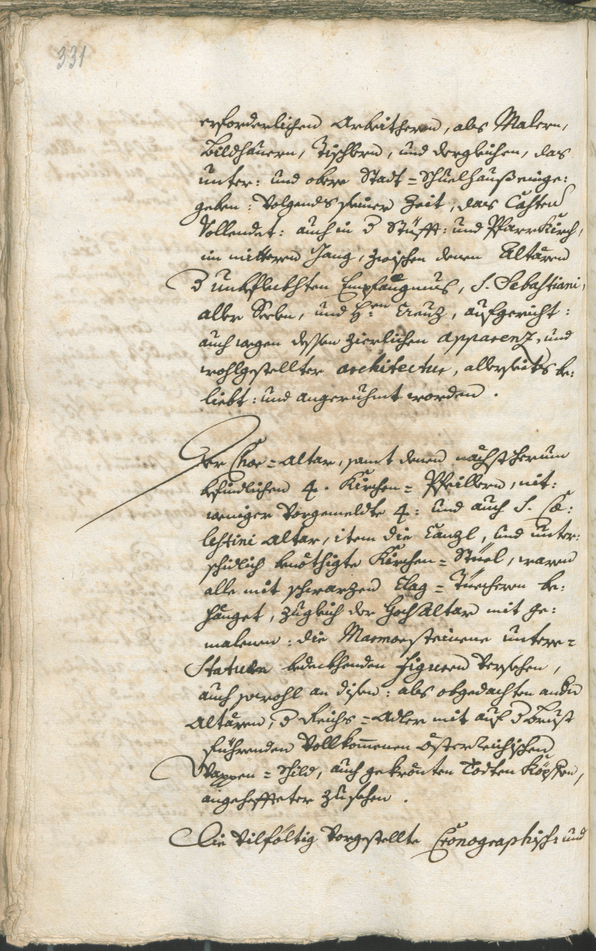 331
erforderlichen Arbeitheren, als Malern,
Bildhauern, Tischlern, und dergleichen, das
unter: und obere Stadt=Schuelhauß einge:
geben: Volgends seiner Zeit, das Castrum
Vollendet: auch in d Stüfft: und Pfarrkürch,
im mittern Gang, zwischen denen Altären
d unbeflekhten Empfängnus, S. Sebastiani,
aller Seelen, und H: Creuz, aufgericht:
auch wegen dessen zierlichen apparenz, und
wohlgestellter architectur, allerseits be:
liebt: und angerühmt worden.
Der Chor=Altar, samt denen nächst herum
befindlichen 4. Kirchen=Pfeillern, nit:
weniger Vorgemeldte 4: und auch S. Cae:
lestini Altar, item die Canzl, und unter:
schidlich benöthigte Kirchen=Stüel, waren
alle mit schwarzen Klag=Tüecheren be:
hänget, zugleich der Hoch Altar mit ge:
malenen: die Marmorsteinene untere=
Statuen bedeckhenden Figuren Versehen,
auch sowohl an disen: als obgedachten andn
Altären, d Reichs=Adler mit auf d Brust
führenden Vollkommenen Österreichischen
Wappen=Schild, auch gekrönten Todten Köpffen,
angeheffteter zusehen.
Die Vilfältig Vorgestellte Cronographisch: und